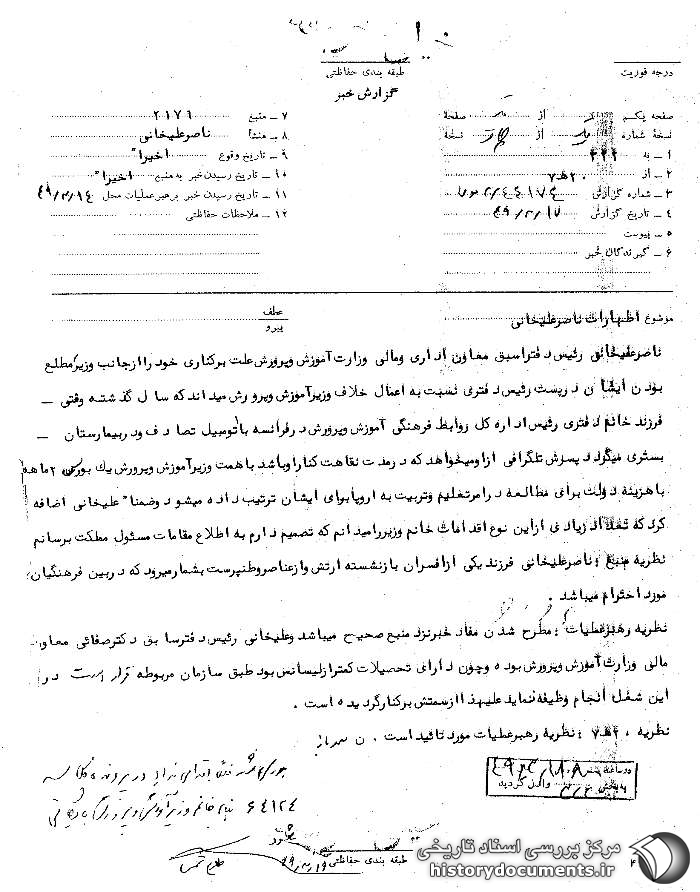 درجه فوریت
طبقه بندی حفاظتی
گزارش خبر
صفحه یکم از صفحه
نسخه شماره از نسخه
۱ – به ۳۴۲
۲ – از ۲۰ ﻫ ۷
۳ – شماره گزارش
۴ – تاریخ گزارش ۴۹/۳/۱۷
۵ – پیوست
۶ – گیرندگان خبر
۷ – منبع ۲۱۷۶
۸ – منشأ ناصرعلیخانی
۹ – تاریخ وقوع اخیرا"
۱۰ – تاریخ رسیدن خبر به منبع اخیرا"
۱۱ – تاریخ رسیدن خبر برهبرعملیات محل ۴۹/۳/۱۴
۱۲ – ملاحظات حفاظتی
موضوع اظهارات ناصرعلیخانی
عطف
پیرو
ناصرعلیخانی رئیس دفتراسبق معاون اداری ومالی وزارت آموزش وپرورش علت برکناری خود راازجانب وزیرمطلع
بودن ایشان درپست رئیس دفتری نسبت به اعمال خلاف وزیرآموزش وپرورش میداند که سال گذشته وقتی –
فرزند خانم دفتری رئیس اداره کل روابط فرهنگی آموزش وپرورش درفرانسه باتومبیل تصادف ودربیمارستان –
بستری میگردد پسرش تلگرافی ازاومیخواهد که درمدت نقاهت کناراوباشد باهمت وزیرآموزش وپرورش یك بورس ۲ ماهه
باهزینه دولت برای مطالعه درامرتعلیم وتربیت به اروپابرای ایشان ترتیب داده میشود وضمنا" علیخانی اضافه
کرد که تعداد زیادی ازاین نوع اقدامات خانم وزیررامیدانم که تصمیم دارم به اطلاع مقامات مسئول مملکت برسانم
نظریه منبع : ناصرعلیخانی فرزند یکی ازافسران بازنشسته ارتش وازعناصروطنپرست بشمارمیرود که دربین فرهنگیان
مورد احترام میباشد .
نظریه رهبرعملیات : مطرح شدن مفاد خبرنزد منبع صحیح میباشد وعلیخانی رئیس دفترسابق دکترصفائی معاون
مالی وزارت آموزش وپرورش بوده وچون دارای تحصیلات کمترازلیسانس بود طبق سازمان مربوطه قرار است در
این شغل انجام وظیفه نماید علیهذا ازسمتش برکنارگردیده است .
نظریه ۲۰ ﻫ ۷ : نظریه رهبرعملیات مورد تائید است .
واصل گردید
۶۴۱۲۴
طبقه بندی حفاظتی
۴۹/۳/۱۹
مرکز بررسی اسناد تاریخی
historydocuments.ir